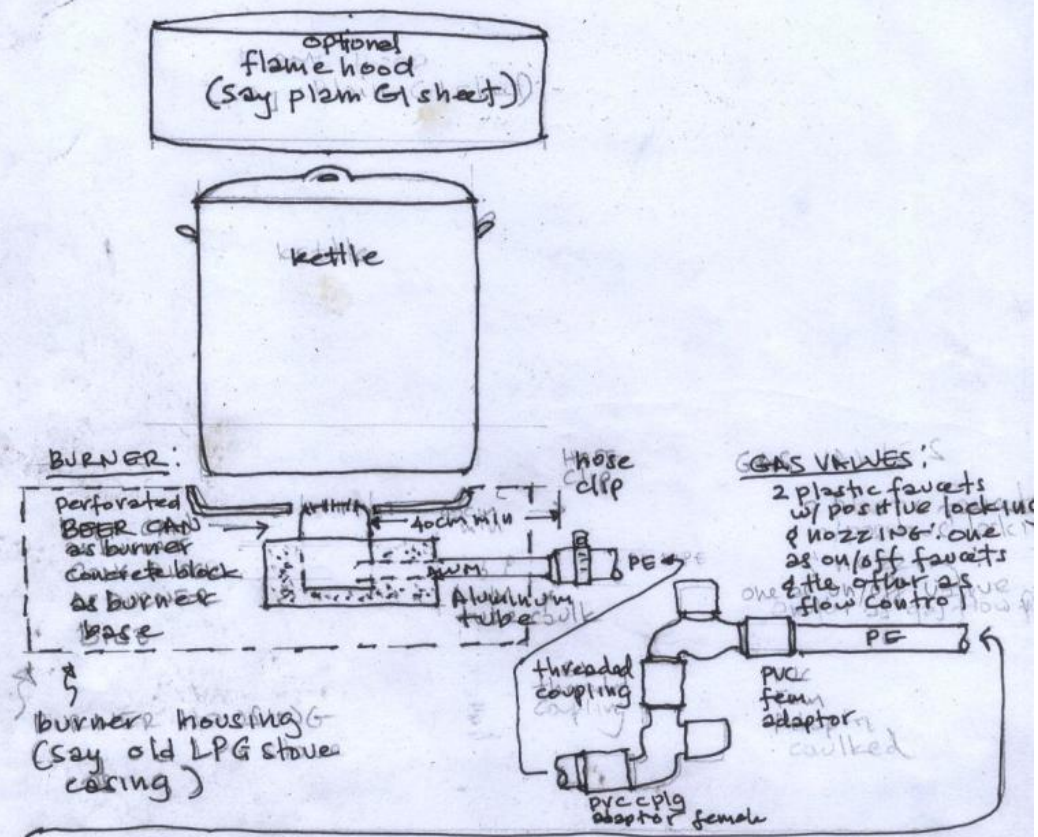 optional
flame hood
(say plain GI sheet)
kettle
BURNER:
perforated
BEER CAN
as burner
concrete block
as burner
base
40cm min
hose
clip
PE
ALUM
Aluminum
tube
burner housing
(say old LPG stove
casing)
GAS VALVES:
2 plastic faucets
w/ positive locking
& nozzing: one
as on/off faucets
& the other as
flow control
PE
threaded
coupling
PVC
fem
adaptor
caulked
pvc cplg
adaptor female